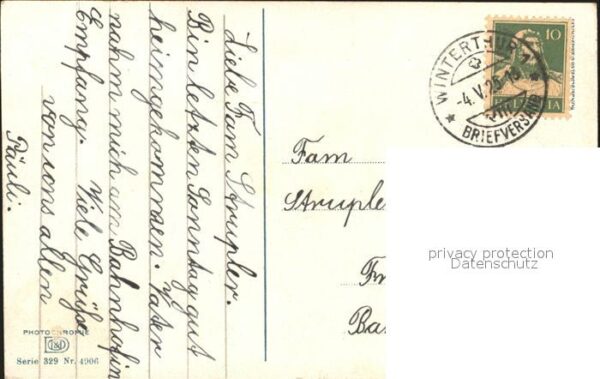 Liebe Fam Strupler.
Bin letzten Sonntag gut
heimgekommen. Vater
nahm mich am Bahnhof in
Empfang. Viele Grüße
von uns allen
Päuli.
PHOTOCHROMIE
Serie 329 Nr. 4906
Fam
Strupler
Fr
Ba
10
HELVETIA
WINTERTHUR 1
-4.V.25-18
VIII
BRIEFVERSAND
privacy protection
Datenschutz